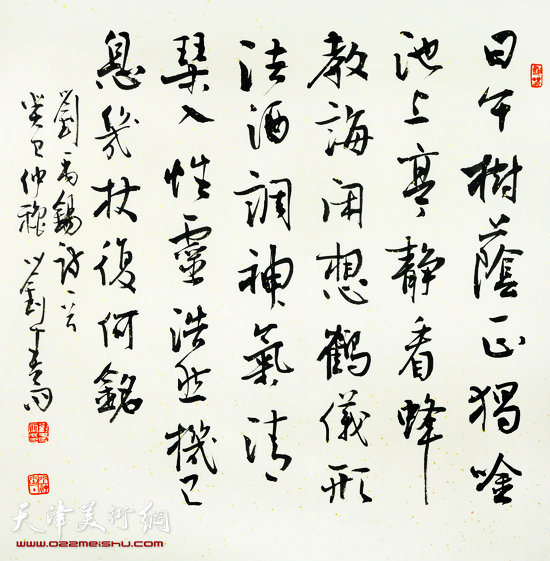 日午樹蔭正獨唫
池上亭靜看蜂
教誨閑想鶴儀形
法酒調神氣清
琹入性靈浩然機已
息幾杖復何銘
劉禹錫詩一首
癸巳仲
天津美術網
www.022meishu.com